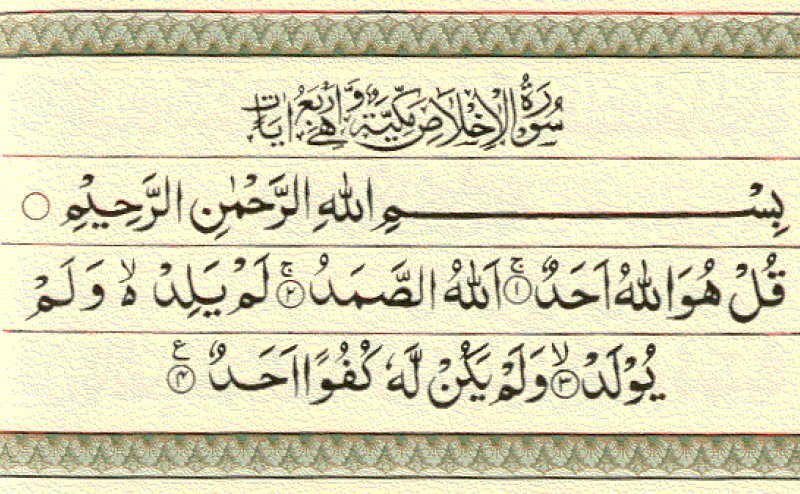 سُورَةُ الْاِخْلَاصِ مَكِّيَّةٌ وَّهِىَ اَرْبَعُ اٰيَاتٍ
بِسْمِ اللهِ الرَّحْمٰنِ الرَّحِيْمِ ○
قُلْ هُوَ اللهُ اَحَدٌ ۚ ﴿١﴾ اَللهُ الصَّمَدُ ۚ ﴿٢﴾ لَمْ يَلِدْ ۙ۬ وَلَمْ
يُوْلَدْ ۙ ﴿٣﴾ وَلَمْ يَكُنْ لَّهٗ كُفُوًا اَحَدٌ ࣖ ﴿٤﴾